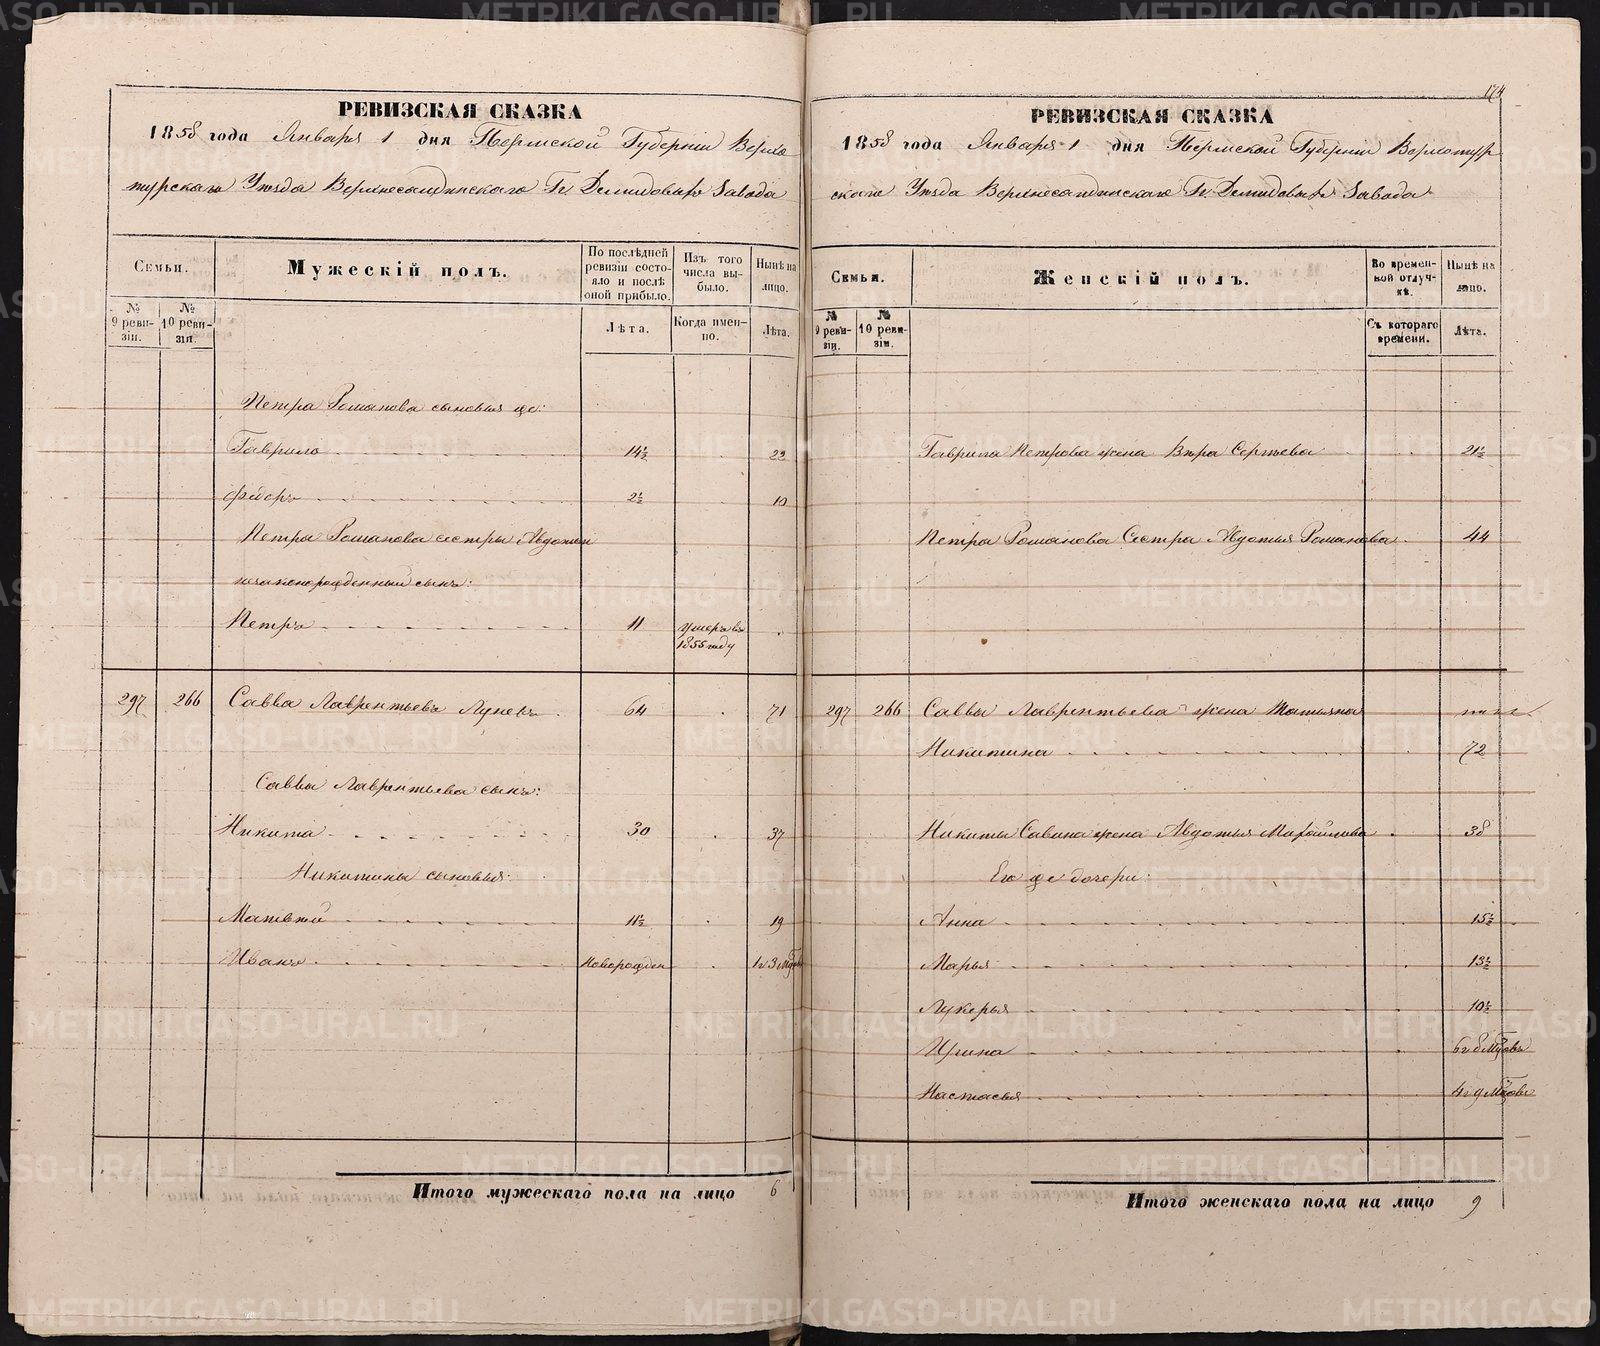 174
РЕВИЗСКАЯ СКАЗКА
1858 года Января 1 дня Пермской Губерніи Верхо
турскаго Уѣзда Верхнесалдинскаго Гг. Демидовыхъ Завода
Семьи.
Мужескій полъ.
По послѣдней ревизіи состояло и послѣ оной прибыло.
Изъ того числа выбыло.
Нынѣ на лицо.
№ 9 ревизіи.
№ 10 ревизіи.
Лѣта.
Когда именно.
Лѣта.
Петра Романова сыновья же:
Гаврило 14½ 22
Федоръ 2½ 10
Петра Романова сестры Авдотьи
незаконорожденный сынъ:
Петръ 11 умеръ въ
1855 году
297 266 Савва Лаврентьевъ 64 71
Саввы Лаврентьева сынъ:
Никита 30 37
Никитины сыновья:
Матвѣй 11½ 19
Иванъ Новорожден 1 г 3 мѣ
Итого мужескаго пола на лицо 6
РЕВИЗСКАЯ СКАЗКА
1858 года Января 1 дня Пермской Губерніи Верхотур
скаго Уѣзда Верхнесалдинскаго Гг. Демидовыхъ Завода
Семьи.
Женскій полъ.
Во временной отлучкѣ.
Нынѣ на лицо.
№ 9 ревизіи.
№ 10 ревизіи.
Съ котораго времени.
Лѣта.
Гаврила Петрова жена Вѣра Сергѣева 21½
Петра Романова Сестра Авдотья Романова 44
297 266 Саввы Лаврентьева жена Татьяна
Никитина 72
Никиты Савина жена Авдотья Михайлова 38
Его же дочери:
Анна 15½
Марья 13½
Лукерья 10½
Ирина 6 г 8 мѣсяцовъ
Настасья 4 г 9 мѣсяцовъ
Итого женскаго пола на лицо 9
METRIKI.GASO-URAL.RU